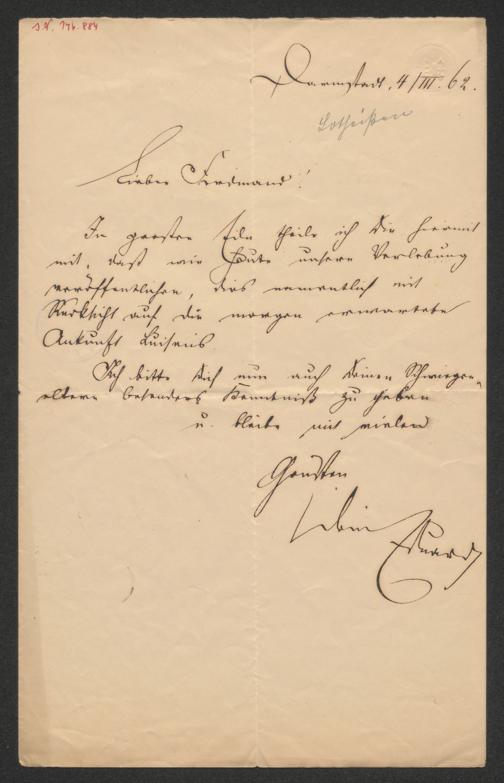 J.N. 146.884
Darmstadt, 4/III. 62.
Lotheißen
Lieber Ferdinand!
In grosser Eile theile ich Dir hiermit
mit, daß wir Heute unsere Verlobung
veröffentlichen, dies namentlich mit
Rücksicht auf die morgen erwartete
Ankunft Luisens
Ich bitte Dich nun auch Deinen Schwieger-
eltern besonders Kenntniß zu geben
u. bleibe mit vielen
Grüßen
Dein Eduard